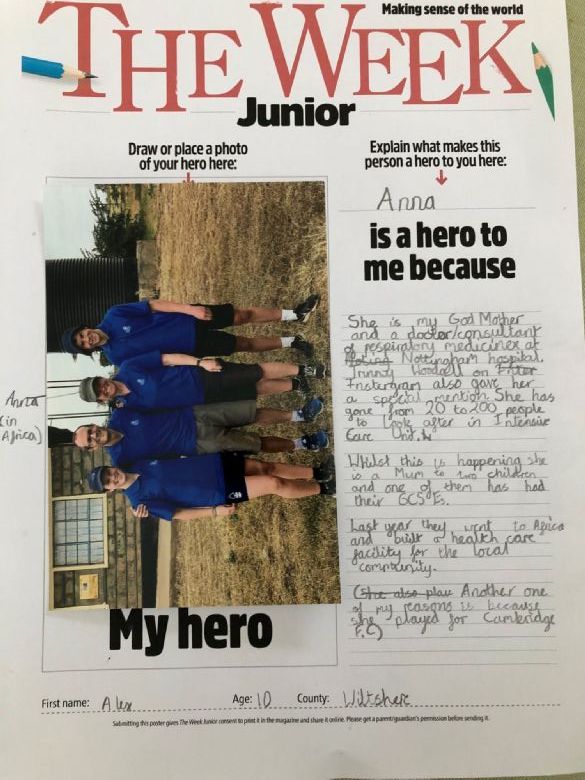 Making sense of the world
THE WEEK
Junior
Draw or place a photo
of your hero here:
Explain what makes this
person a hero to you here:
Anna
is a hero to
me because
Anna
(in
Africa)
She is my God Mother
and a doctor/consultant
of respiratory medicine at
Nottingham hospital.
on
Instergram also gave her
a special mention She has
gone from 20 to 200 people
to look after in Intensive
Care Unit.
Whilst this is happening she
is a Mum to two children
and one of them has had
their GCSEs.
Last year they went to Africa
and built a health care
facility for the local
community.
(She also play Another one
of my reasons is because
she played for Cambridge
F.C)
My hero
First name: Alex Age: 10 County: Wiltshere
Submitting this poster gives The Week Junior consent to print it in the magazine and share it online. Please get a parent/guardian's permission before sending it.